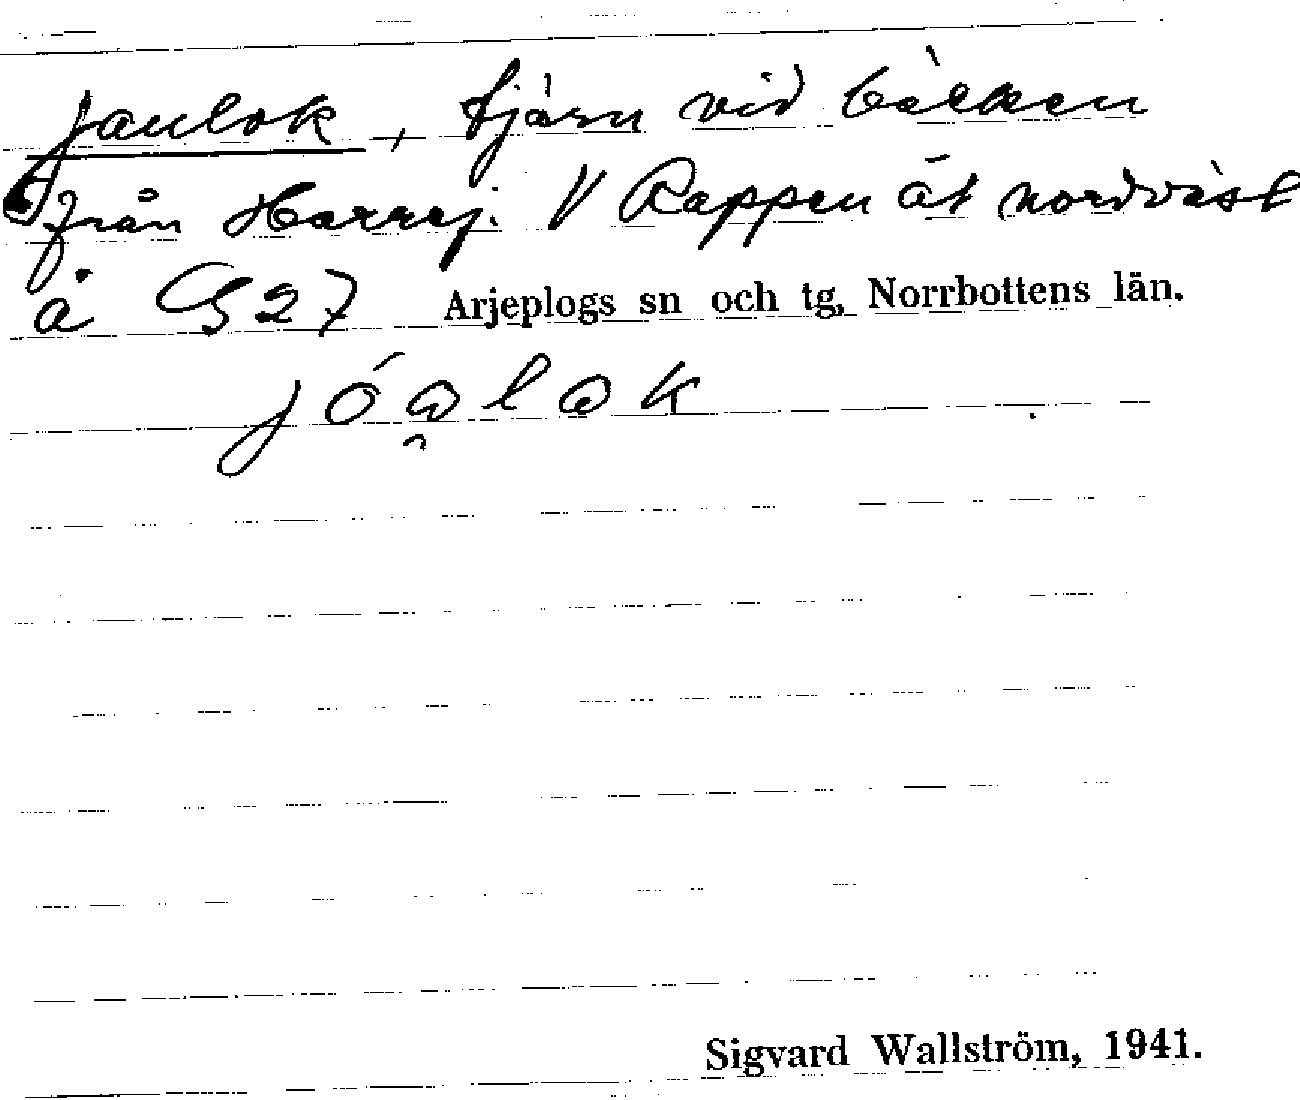 Jaulok, tjärn vid bäcken
från Harrej. V Rappen åt nordväst
å G 27 Arjeplogs sn och tg, Norrbottens län.
jóa̯lak
Sigvard Wallström, 1941.